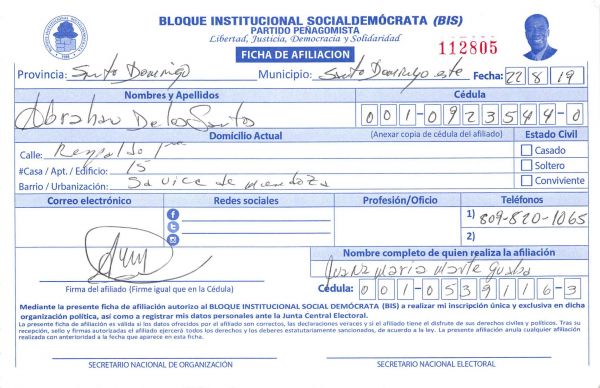 BLOQUE INSTITUCIONAL SOCIALDEMÓCRATA (BIS)
PARTIDO PEÑAGOMISTA
Libertad, Justicia, Democracia y Solidaridad
FICHA DE AFILIACION
112805
Provincia: Santo Domingo Municipio: Santo Domingo este Fecha: 22/8/19
Nombres y Apellidos Cédula
Abraham De los Santos 001-0923544-0
Domicilio Actual (Anexar copia de cédula del afiliado) Estado Civil
Calle: Respaldo 1ra Casado
#Casa / Apt. / Edificio: 15 Soltero
Barrio / Urbanización: de mendoza Conviviente
Correo electrónico Redes sociales Profesión/Oficio Teléfonos
1) 809-820-1065
2)
Nombre completo de quien realiza la afiliación
Juana Maria Marte
Firma del afiliado (Firme igual que en la Cédula) Cédula: 001-0539116-3
Mediante la presente ficha de afiliación autorizo al BLOQUE INSTITUCIONAL SOCIAL DEMÓCRATA (BIS) a realizar mi inscripción única y exclusiva en dicha
organización política, así como a registrar mis datos personales ante la Junta Central Electoral.
La presente ficha de afiliación es válida si los datos ofrecidos por el afiliado son correctos, las declaraciones veraces y si el afiliado tiene el disfrute de sus derechos civiles y políticos. Tras su
recepción, sello y firmas autorizadas el afiliado ejercerá todos los derechos y los deberes estatutariamente sancionados, de acuerdo a la ley. La presente afiliación anula cualquier afiliación
realizada con anterioridad a la fecha que aparece en esta ficha.
SECRETARIO NACIONAL DE ORGANIZACIÓN SECRETARIO NACIONAL ELECTORAL